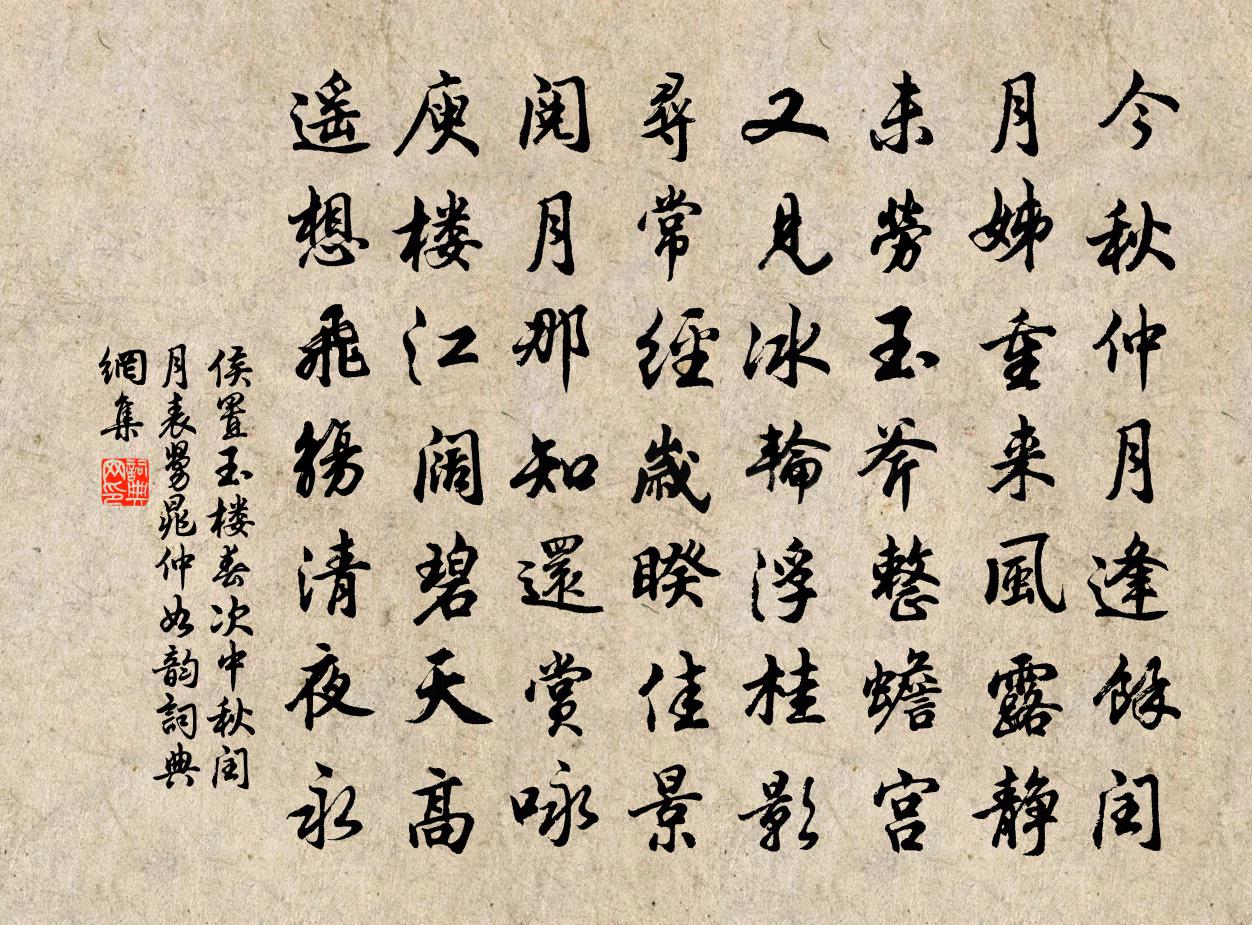 今秋仲月逢餘闰
月姊重来風露静
未勞玉斧整蟾宫
又見冰輪浮桂影
尋常經歲睽佳景
阅月那知還賞咏
庾楼江阔碧天高
遥想飛觴清夜永
侯置玉楼春次中秋闰
月表舅晁仲如韵詞典
網集
詞典
网印